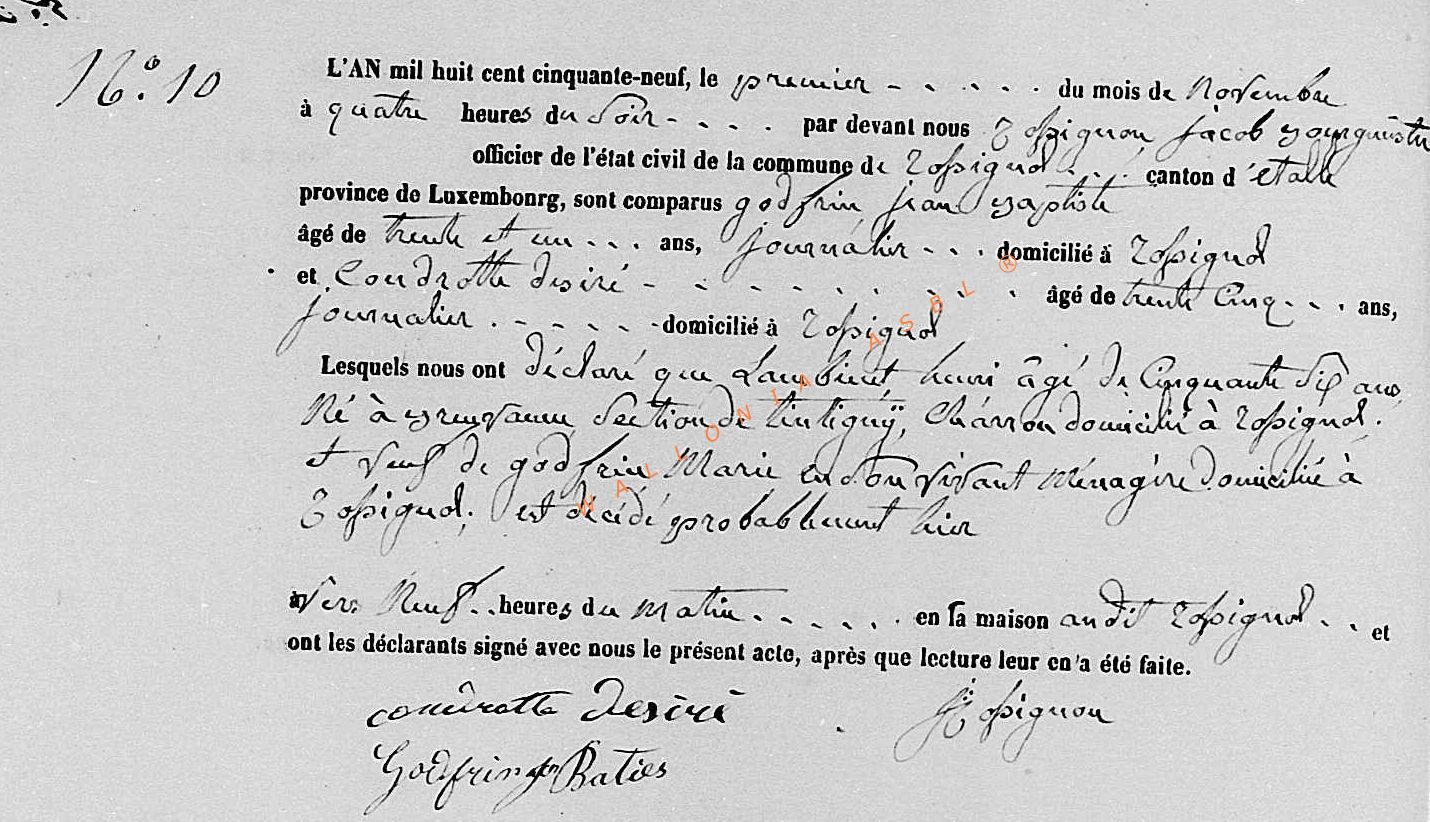 N.° 10
L'AN mil huit cent cinquante-neuf, le premier - - - - - . du mois de Novembre
à quatre heures du Soir - - - . par devant nous Rossignon, Jacob
officier de l'état civil de la commune de Rossignol . . . canton d'étalle
province de Luxembourg, sont comparus godfrin, jean Baptiste
âgé de trente et un . . . ans, journalier - - . domicilié à Rossignol
et Condrotte desiré - - - - - - - - - . âgé de trente Cinq - . . ans,
journalier . - - - - - domicilié à Rossignol
Lesquels nous ont déclaré que Lambinet, henri âgé de Cinquante Six ans,
Né à Breuvanne Section de tintignÿ, Charron domicilié à Rossignol.
et veuf de godfrin Marie en son vivant Ménagère Domiciliée à
Rossignol, est décédé probablement hier
à vers Neuf . . heures du matin . - . . . . en sa maison au dit Rossignol . . et
ont les déclarants signé avec nous le présent acte, après que lecture leur en a été faite.
condrotte Desiré Rossignon
Godfrin Baties
WALLONIA ASBL ®